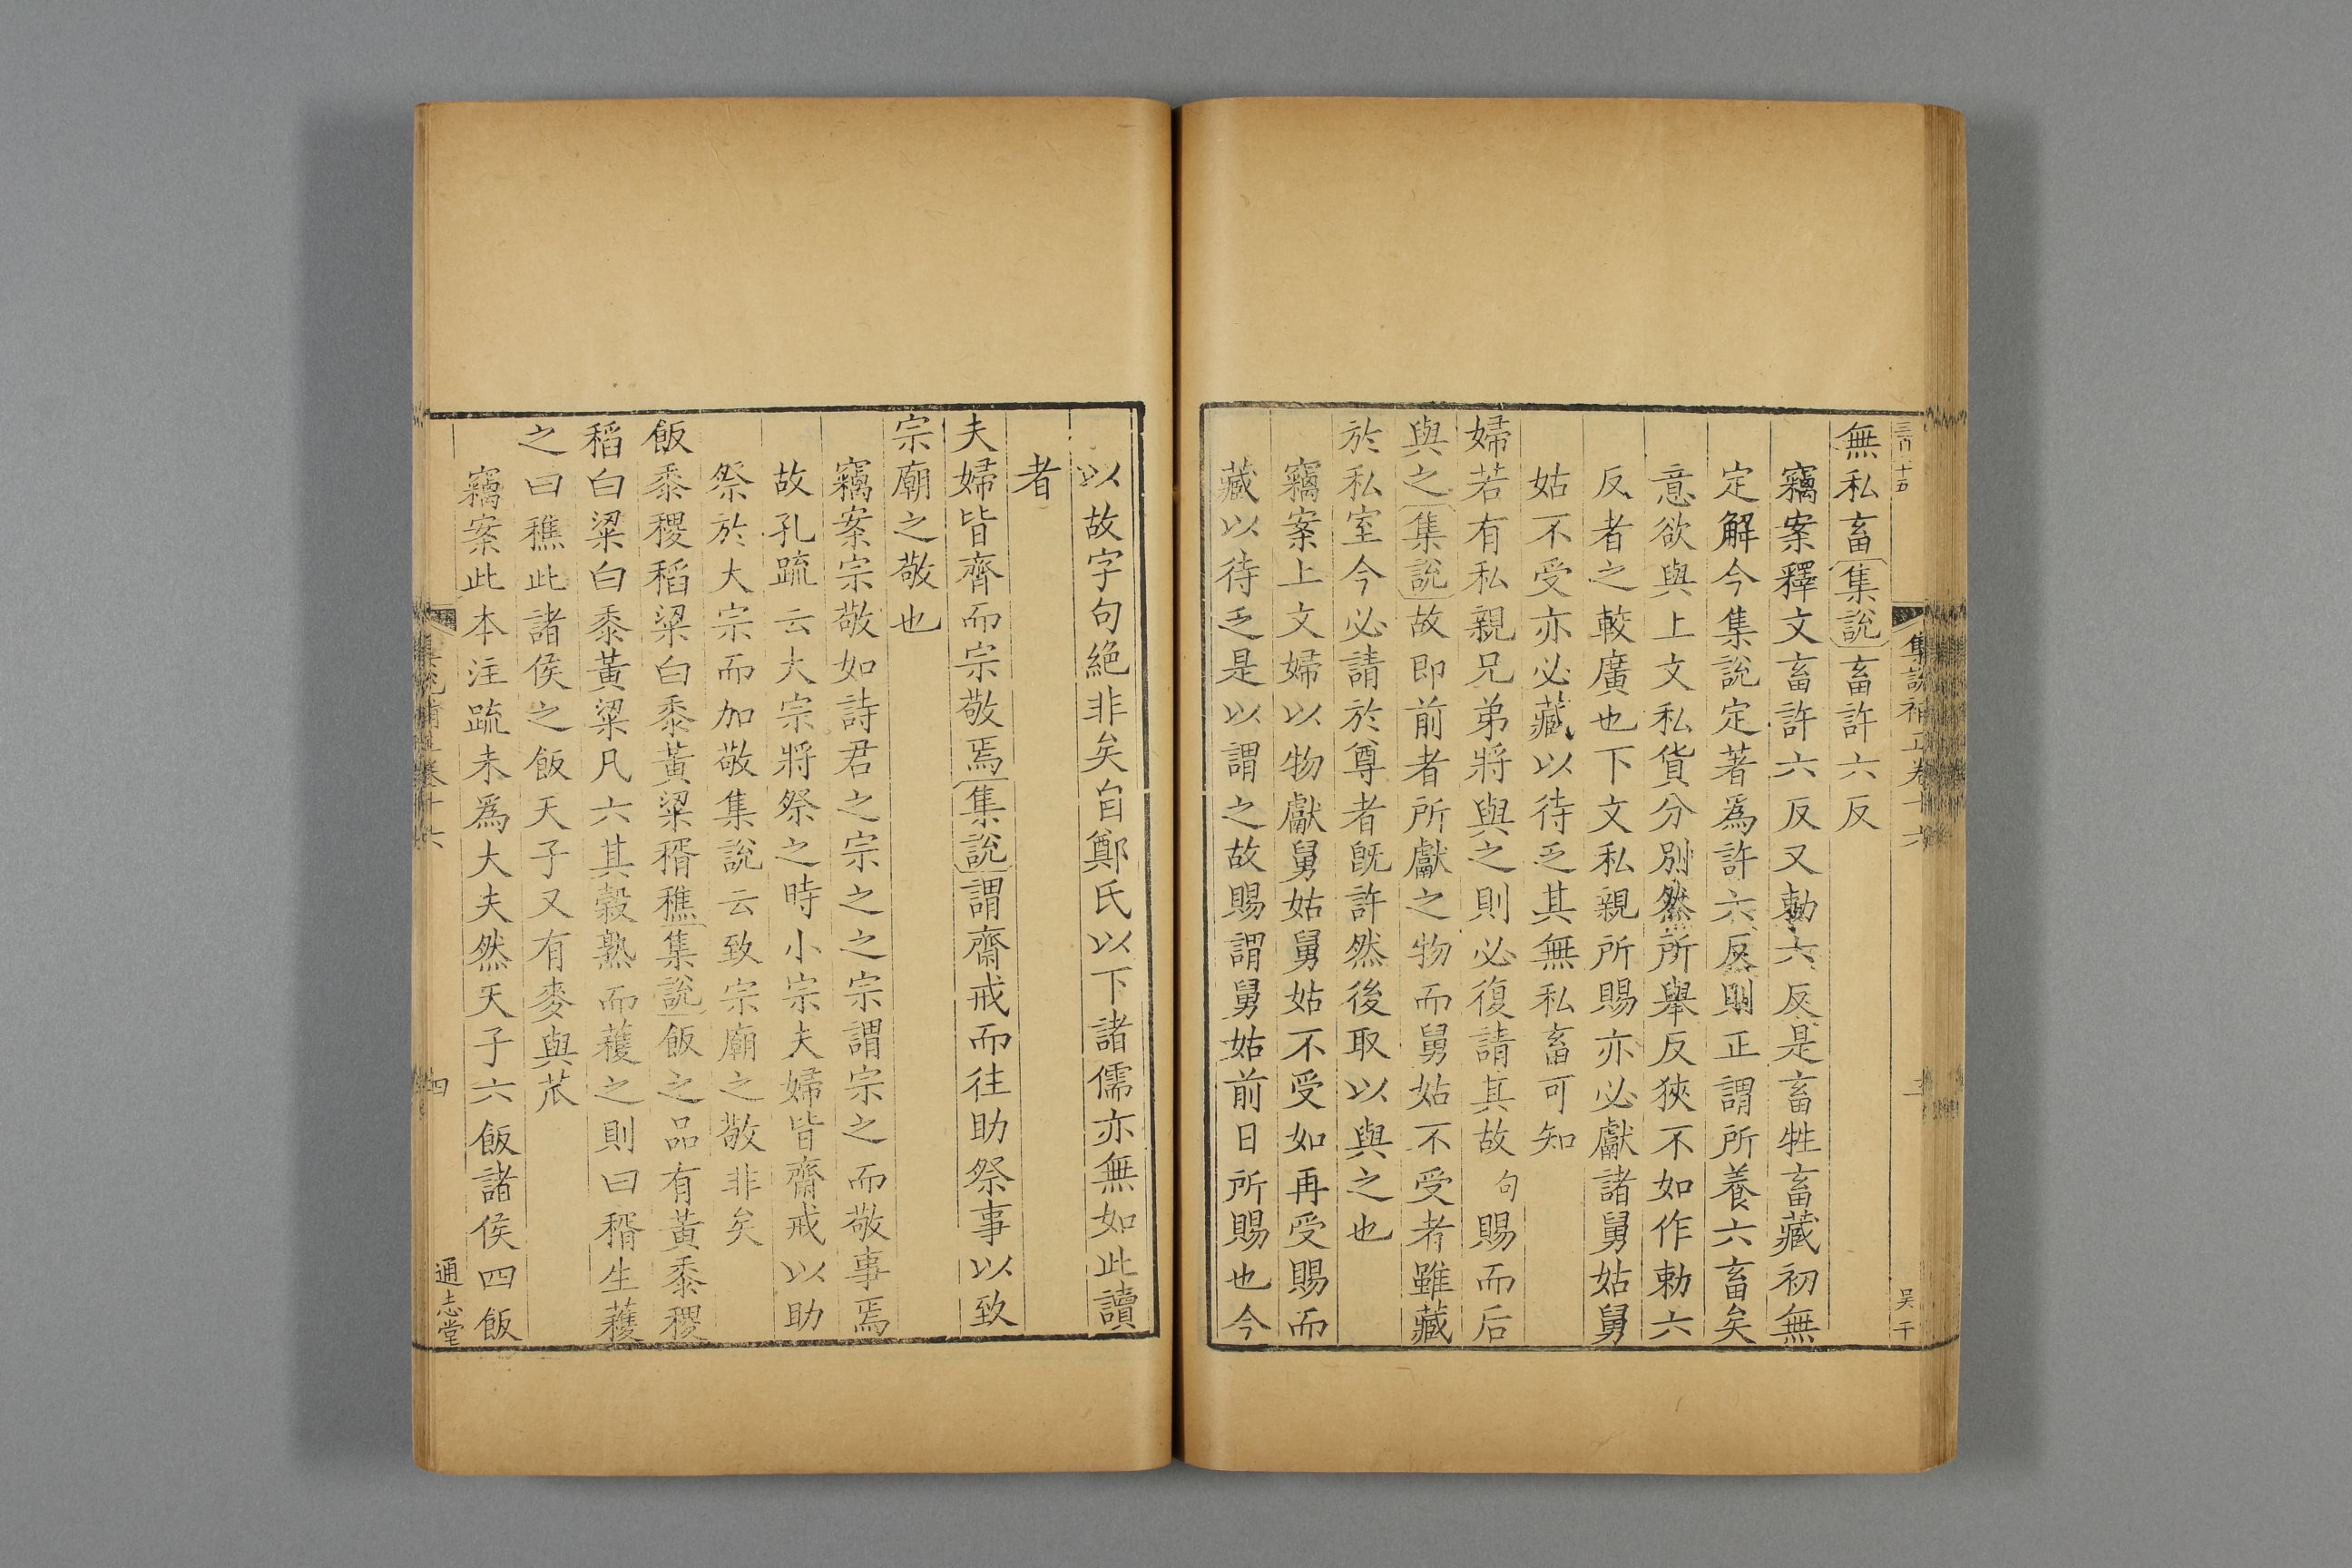 無私畜集說畜許六反
竊案釋文畜許六反又勅六反是畜牲畜藏初無
定解今集說定著爲許六反則正謂所養六畜矣
意欲與上文私貨分別然所舉反狹不如作勅六
反者之較廣也下文私親所賜亦必獻諸舅姑舅
姑不受亦必藏以待乏其無私畜可知
婦若有私親兄弟將與之則必復請其故句賜而后
與之集說故即前者所獻之物而舅姑不受者雖藏
於私室今必請於尊者旣許然後取以與之也
竊案上文婦以物獻舅姑舅姑不受如再受賜而
藏以待乏是以謂之故賜謂舅姑前日所賜也今
以故字句絕非矣自鄭氏以下諸儒亦無如此讀
者
夫婦皆齊而宗敬焉集說謂齋戒而往助祭事以致
宗廟之敬也
竊案宗敬如詩君之宗之之宗謂宗之而敬事焉
故孔疏云大宗將祭之時小宗夫婦皆齋戒以助
祭於大宗而加敬集說云致宗廟之敬非矣
飯黍稷稻粱白黍黃粱稰穛集說飯之品有黃黍稷
稻白粱白黍黃粱凡六其穀熟而穫之則曰稰生穫
之曰穛此諸侯之飯天子又有麥與苽
竊案此本注疏未爲大夫然天子六飯諸侯四飯
集說補正卷十六
吴千
集說補正卷十六
四
通志堂